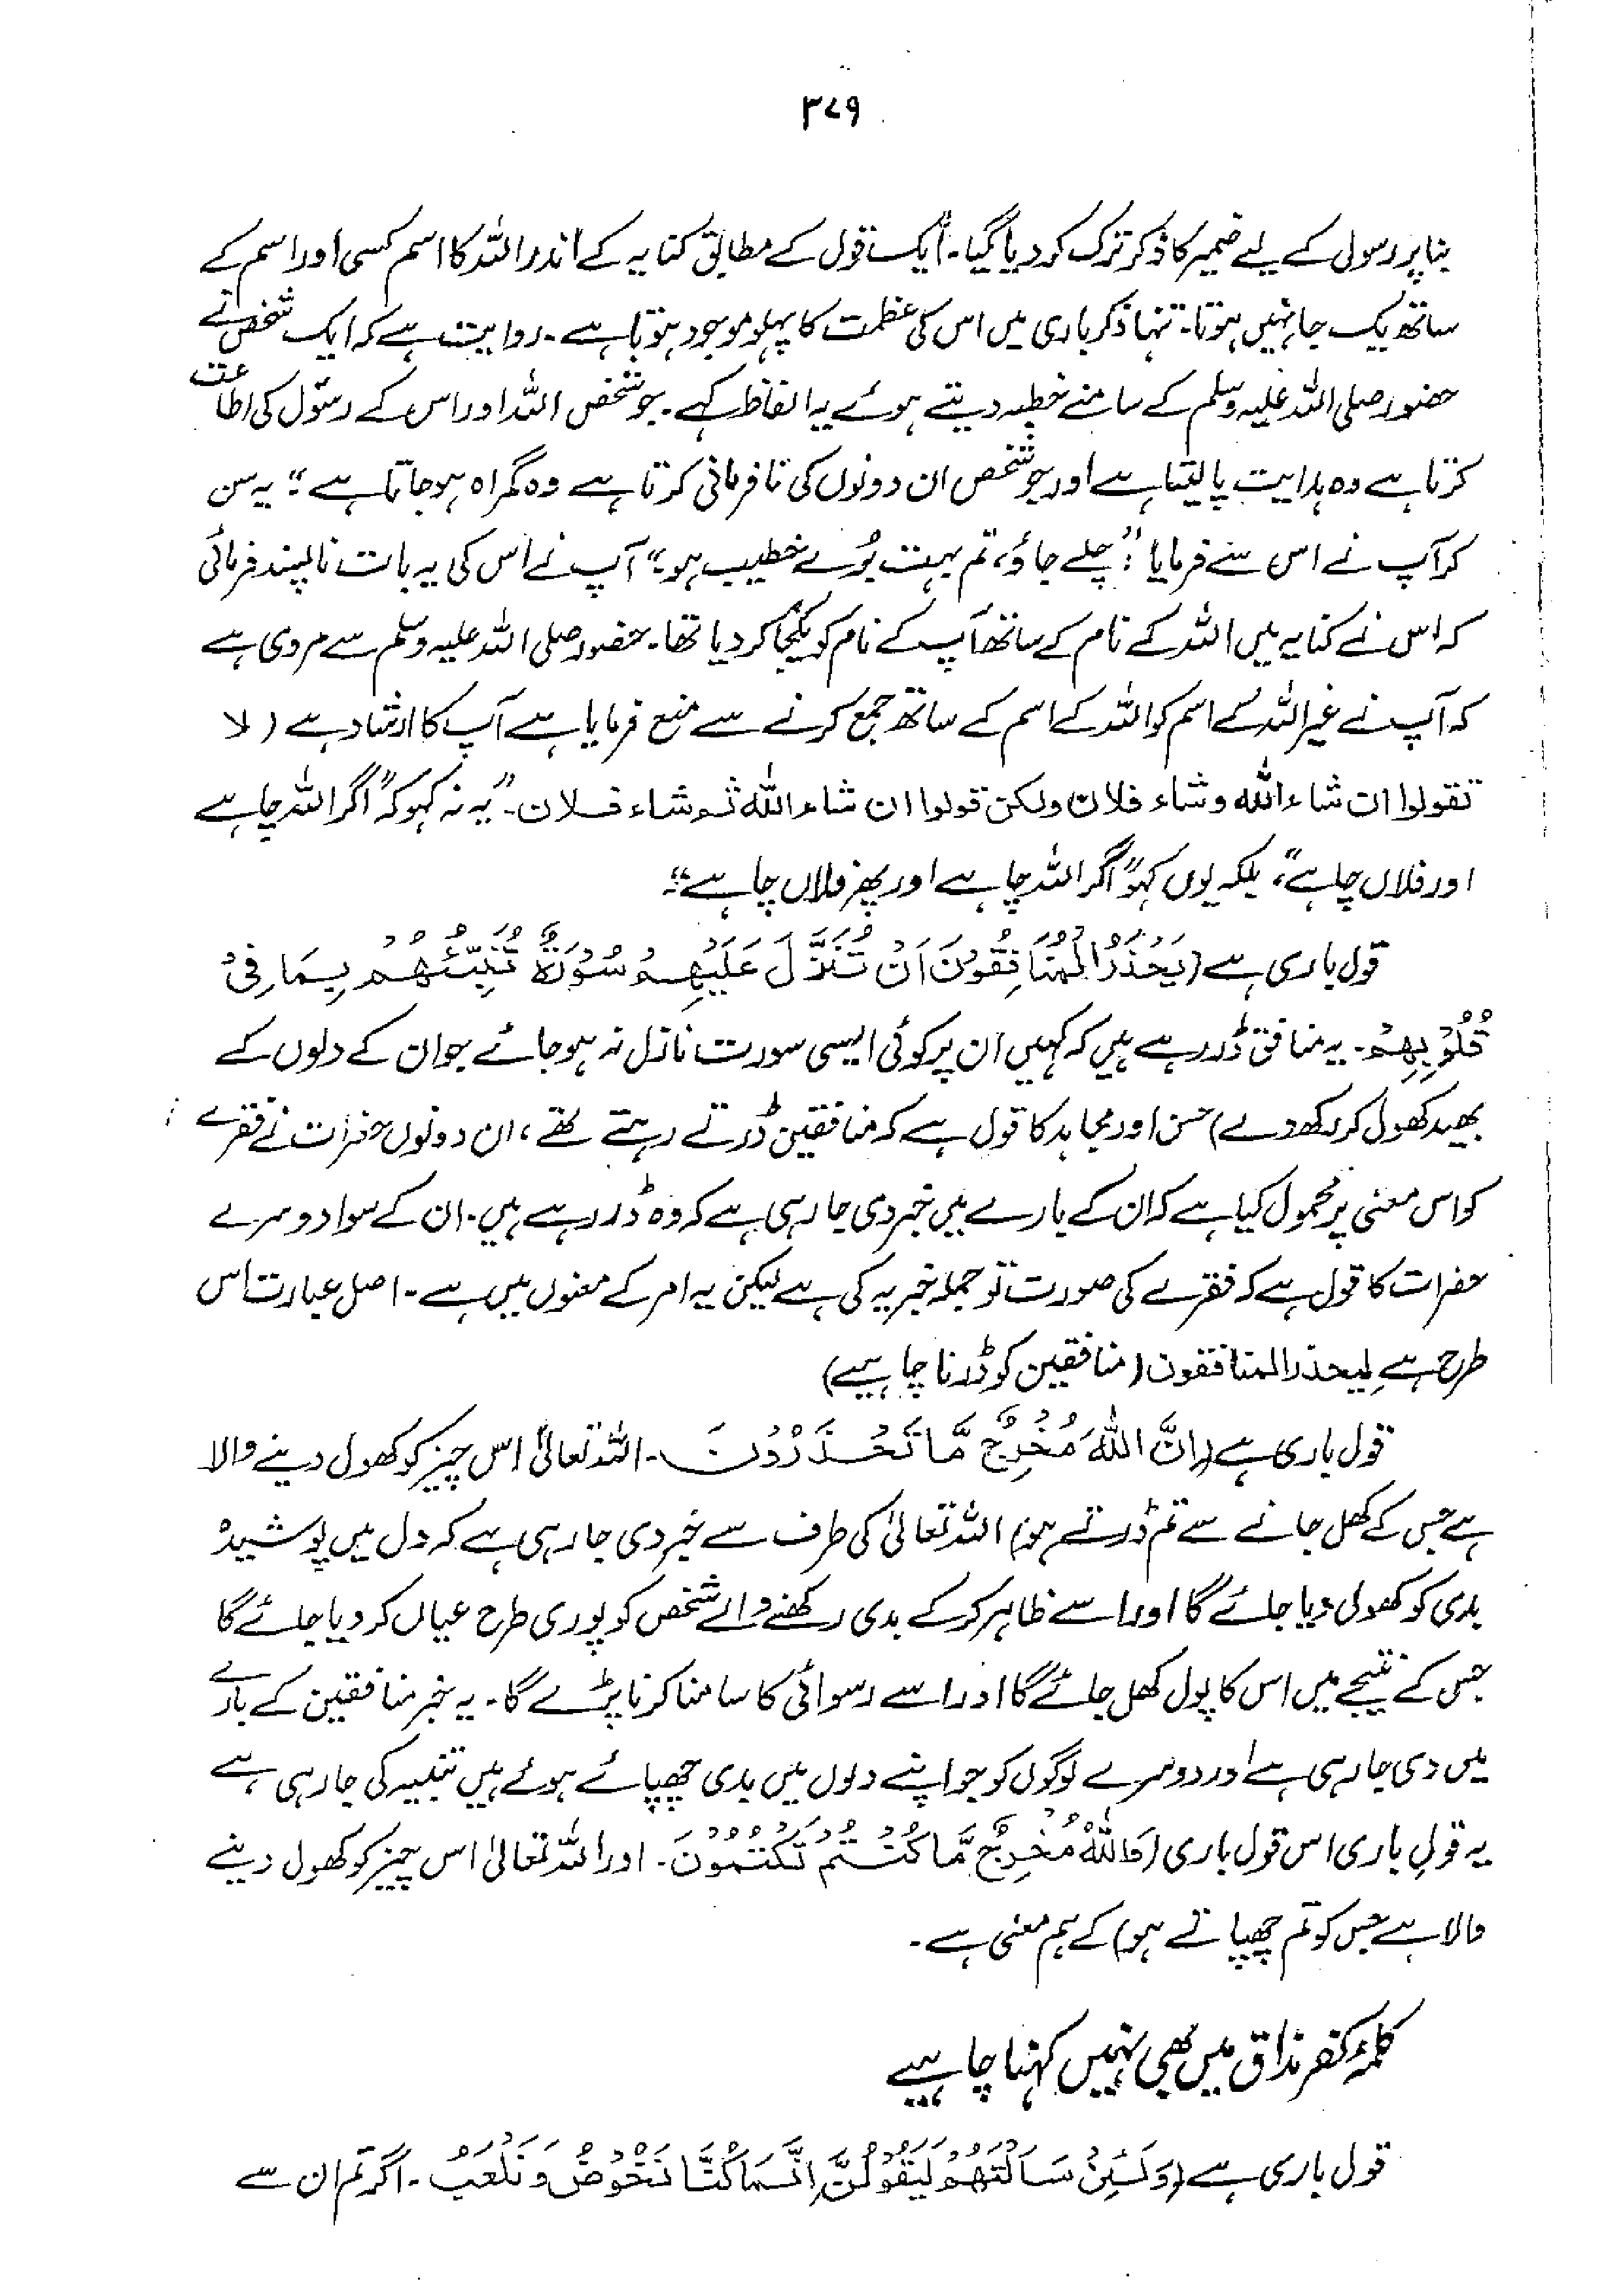 ۳۷۹
بنا پر رسول کے لیے ضمیر کا ذکر ترک کر دیا گیا۔ ایک قول کے مطابق کنایہ کے اندر اللہ کا اسم کسی اور اسم کے
ساتھ یک جا نہیں ہوتا۔ تنہا ذکر باری میں اس کی عظمت کا پہلو موجود ہوتا ہے۔ روایت ہے کہ ایک شخص نے
حضور صلی اللہ علیہ وسلم کے سامنے خطبہ دیتے ہوئے یہ الفاظ کہے۔ جو شخص اللہ اور اس کے رسول کی اطاعت
کرتا ہے وہ ہدایت پا لیتا ہے اور جو شخص ان دونوں کی نافرمانی کرتا ہے وہ گمراہ ہو جاتا ہے“؛ یہ سن
کر آپ نے اس سے فرمایا: ”چلے جاؤ، تم بہت بُرے خطیب ہو“ آپ نے اس کی یہ بات ناپسند فرمائی
کہ اس نے کنایہ میں اللہ کے نام کے ساتھ آپ کے نام کو یکجا کر دیا تھا۔ حضور صلی اللہ علیہ وسلم سے مروی ہے
کہ آپ نے غیر اللہ کے اسم کو اللہ کے اسم کے ساتھ جمع کرنے سے منع فرمایا ہے آپ کا ارشاد ہے (لا
تقولوا ان شاء اللہ وشاء فلان ولکن قولوا ان شاء اللہ ثم شاء فلان۔ ”یہ نہ کہو کہ“ اگر اللہ چاہے
اور فلاں چاہے“، بلکہ یوں کہو“ اگر اللہ چاہے اور پھر فلاں چاہے“؛
قول باری ہے (یَحْذَرُ الْمُنَافِقُوْنَ اَنْ تُنَزَّلَ عَلَیْھِمْ سُوْرَۃٌ تُنَبِّئُھُمْ بِمَا فِیْ
قُلُوْبِھِمْ۔ یہ منافق ڈر رہے ہیں کہ کہیں ان پر کوئی ایسی سورت نازل نہ ہو جائے جو ان کے دلوں کے
بھید کھول کر رکھ دے) حسن اور مجاہد کا قول ہے کہ منافقین ڈرتے رہتے تھے، ان دونوں حضرات نے فقرے
کو اس معنی پر محمول کیا ہے کہ ان کے بارے میں خبر دی جا رہی ہے کہ وہ ڈر رہے ہیں۔ ان کے سوا دوسرے
حضرات کا قول ہے کہ فقرے کی صورت تو جملہ خبریہ کی ہے لیکن یہ امر کے معنوں میں ہے۔ اصل عبارت اس
طرح ہے لِیحذر المنافقون (منافقین کو ڈرنا چاہیے)
قول باری ہے (اِنَّ اللّٰہَ مُخْرِجٌ مَّا تَحْذَرُوْنَ۔ اللہ تعالیٰ اس چیز کو کھول دینے والا
ہے جس کے کھل جانے سے تم ڈرتے ہو) اللہ تعالیٰ کی طرف سے خبر دی جا رہی ہے کہ دل میں پوشیدہ
بدی کو کھول دیا جائے گا اور اسے ظاہر کر کے بدی رکھنے والے شخص کو پوری طرح عیاں کر دیا جائے گا
جس کے نتیجے میں اس کا پول کھل جائے گا اور اسے رسوائی کا سامنا کرنا پڑے گا۔ یہ خبر منافقین کے بارے
میں دی جا رہی ہے اور دوسرے لوگوں کو جو اپنے دلوں میں بدی چھپائے ہوئے ہیں تنبیہ کی جا رہی ہے
یہ قولِ باری اس قول باری (وَاللّٰہُ مُخْرِجٌ مَّا کُنْتُمْ تَکْتُمُوْنَ۔ اور اللہ تعالیٰ اس چیز کو کھول دینے
والا ہے جس کو تم چھپاتے ہو) کے ہم معنی ہے۔
کلمۂ کفر مذاق میں بھی نہیں کہنا چاہیے
قول باری ہے (وَلَئِنْ سَاَلْتَھُمْ لَیَقُوْلُنَّ اِنَّمَا کُنَّا نَخُوْضُ وَنَلْعَبُ۔ اگر تم ان سے